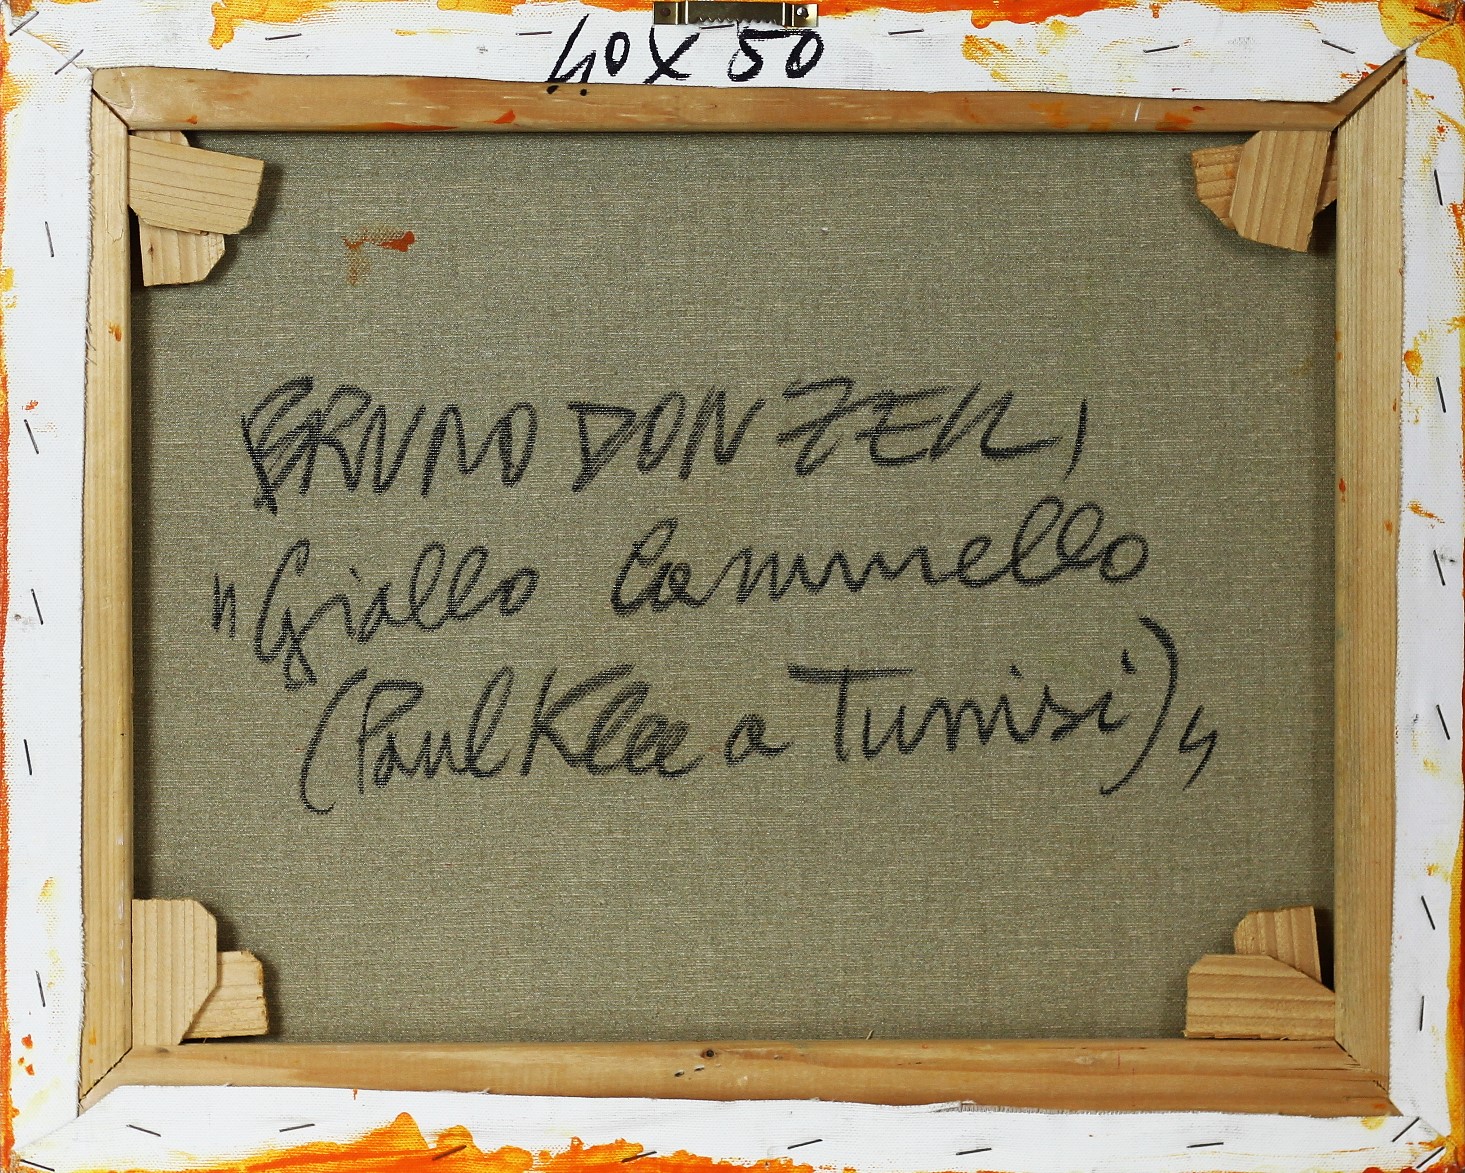 40 X 50
BRUNO DONZELLI
"Giallo Cammello
(Paul Klee a Tunisi)"